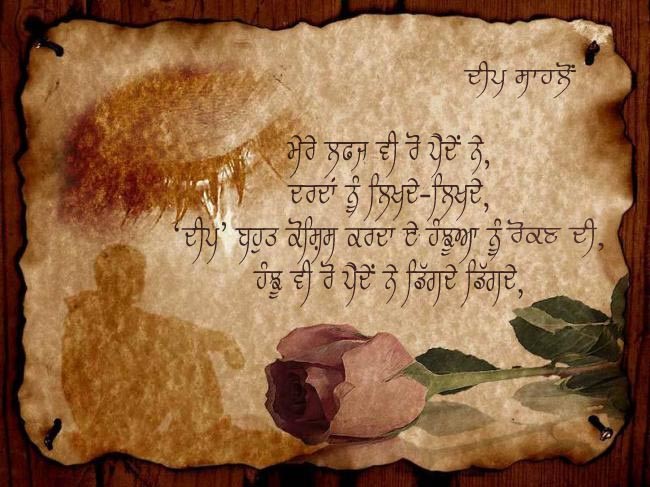 ਦੀਪ ਸਾਹਲੋਂ
ਮੇਰੇ ਲਫਜ ਵੀ ਰੋ ਪੈਦੇਂ ਨੇ,
ਦਰਦਾਂ ਨੂੰ ਲਿਖਦੇ-ਲਿਖਦੇ,
‘ਦੀਪ’ ਬਹੁਤ ਕੋਸ਼ਿਸ ਕਰਦਾ ਏ ਹੰਝੂਆ ਨੂੰ ਰੋਕਣ ਦੀ,
ਹੰਝੂ ਵੀ ਰੋ ਪੈਦੇਂ ਨੇ ਡਿੱਗਦੇ ਡਿੱਗਦੇ,